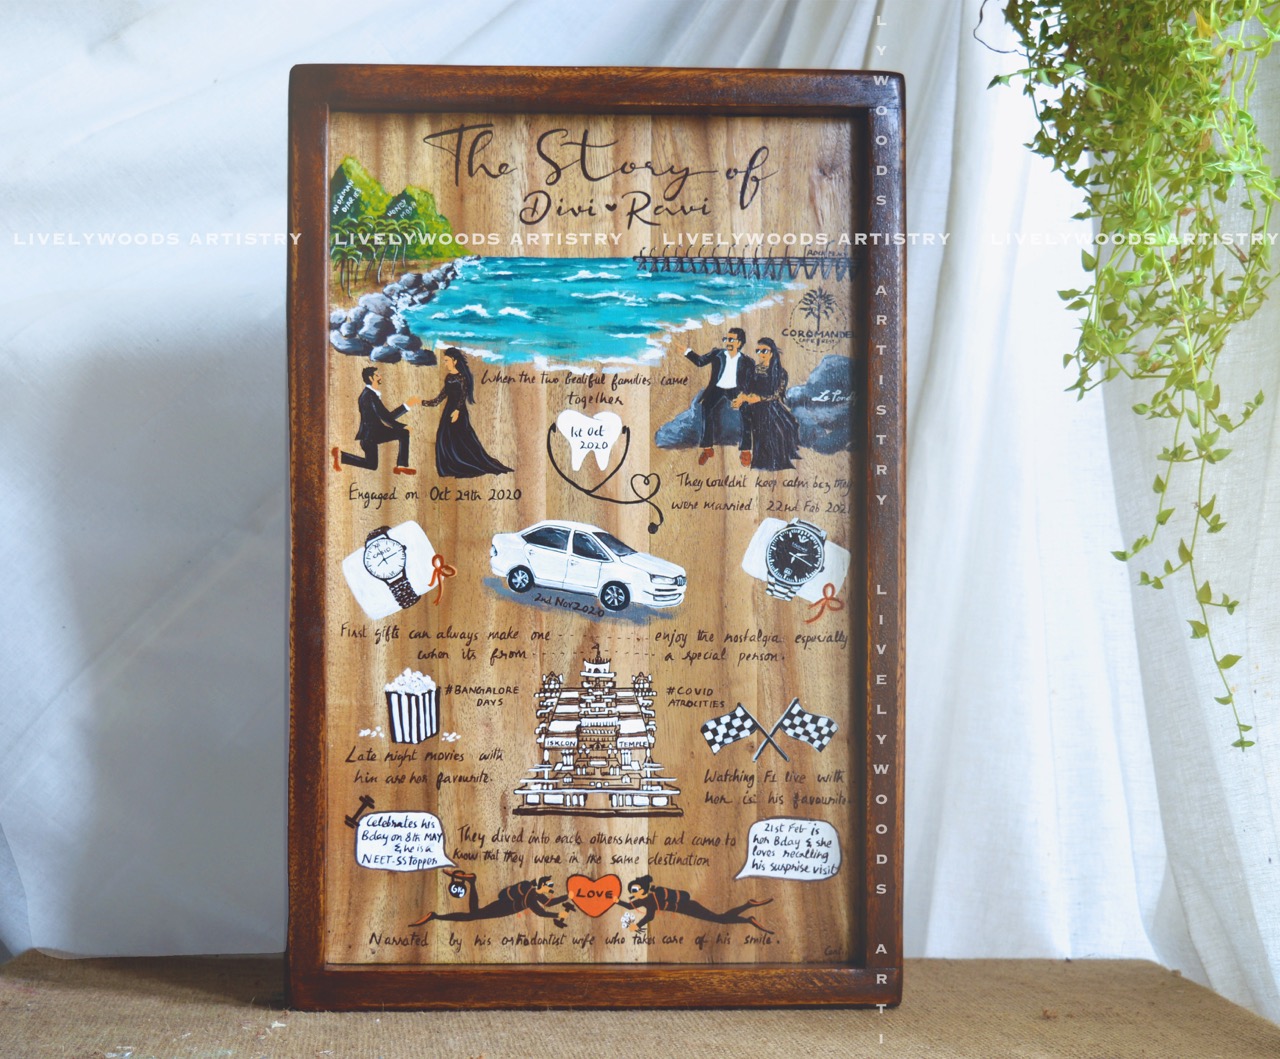 The Story of
Divi Ravi
ANDAMAN
DIARIES
HONEY
MOON
LIVELYWOODS ARTISTRY LIVELYWOODS ARTISTRY LIVELYWOODS ARTISTRY LIVELYWOODS ARTISTRY
COROMANDE
CAFE
Le Pond
When the two beatiful families came
together
1st Oct
2020
Engaged on Oct 29th 2020
They couldn't keep calm bcz they
were married 22nd Feb 202
CASIO
2nd Nov 2020
First gifts can always make one ---------- enjoy the nostalgia especially
when its from ---------- a special person.
#BANGALORE
DAYS
#COVID
ATROCITIES
ISKCON TEMPLE
Late night movies with
him are her favourite.
Watching F1 live with
her is his favourite
Celebrates his
Bday on 8th MAY
& he is a
NEET-SS topper
They dived into each others heart and came to
know that they were in the same destination
21st Feb is
her Bday & she
loves recalling
his surprise visit
LOVE
Narrated by his orthodontist wife who takes care of his smile.
LYWOODS ARTISTRY LIVELYWOODS ARTI